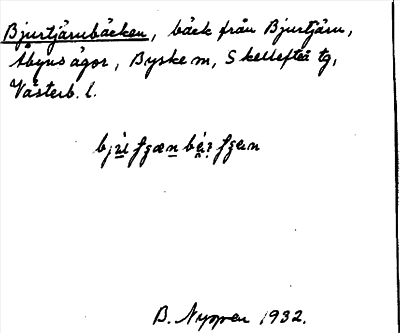 Bjurtjärnbäcken, bäck från Bjurtjärn,
Åbyns ägor, Byske sn, Skellefteå tg,
Västerb. l.
B. Nyman 1932.